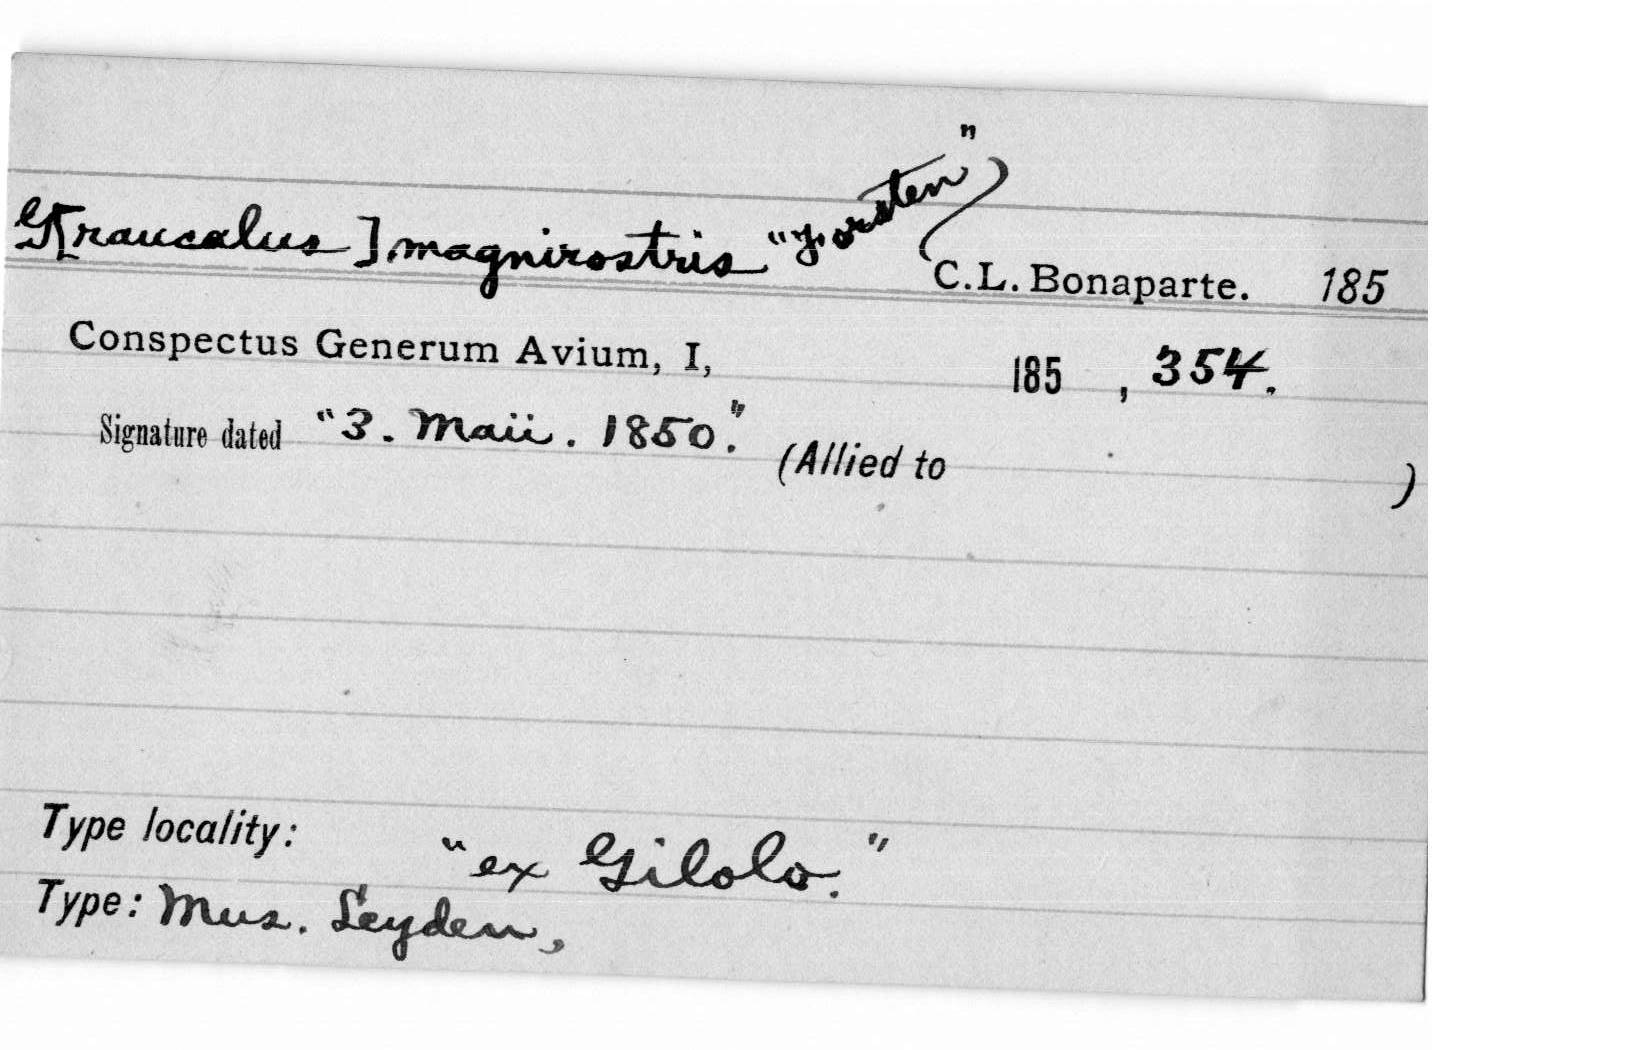 G[raucalus] magnirostris "Forsten") C.L. Bonaparte. 185
Conspectus Generum Avium, I, 185 , 354.
Signature dated "3. Maii. 1850." (Allied to )
Type locality: "ex Gilolo."
Type: Mus. Leyden,